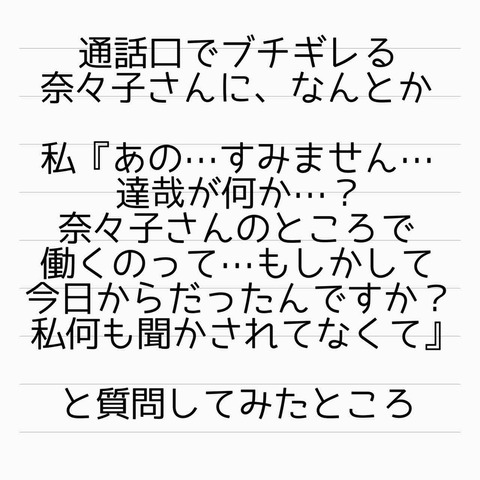 通話口でブチギレる
奈々子さんに、なんとか
私『あの…すみません…
達哉が何か…？
奈々子さんのところで
働くのって…もしかして
今日からだったんですか？
私何も聞かされてなくて』
と質問してみたところ